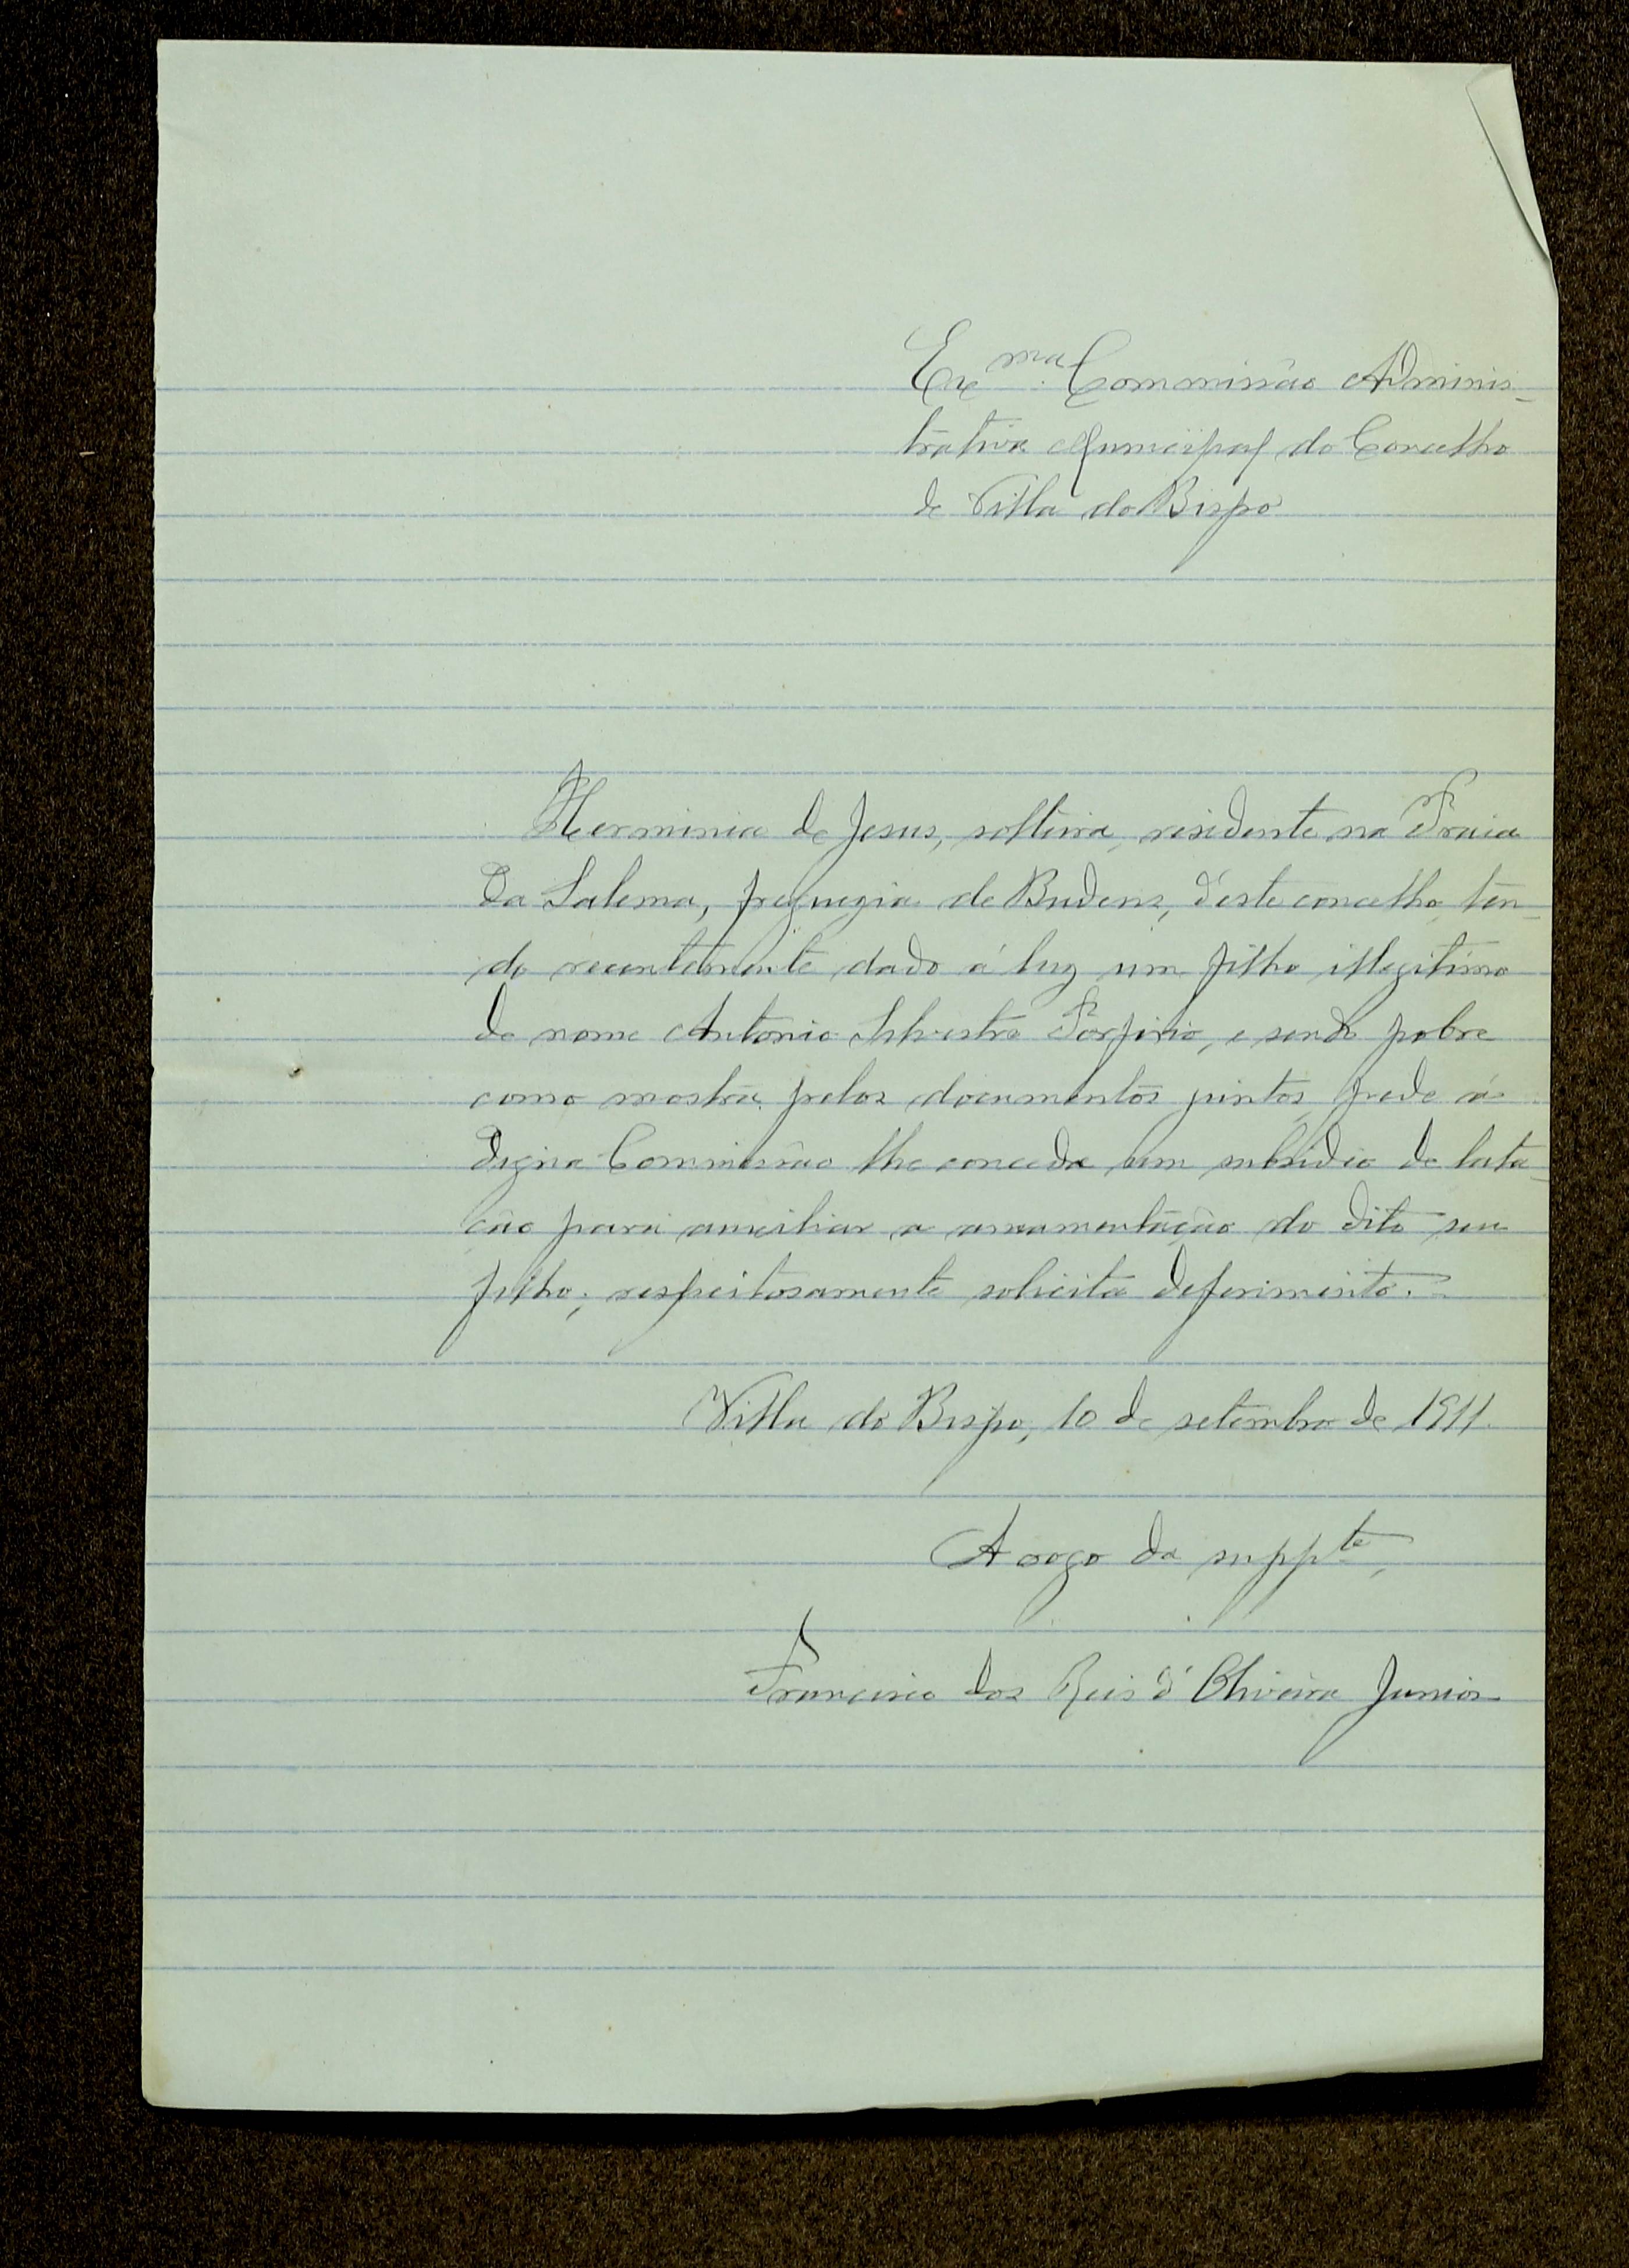 Ex.ma Commissão Adminis-
trativa Municipal do Concelho
de Villa do Bispo
Herminia de Jesus, solteira, residente na Praia
da Salema, freguezia de Budens, d'este concelho, ten-
do recentemente dado á luz um filho illegitimo
de nome Antonio Silvestre Porfirio, e sendo pobre
como mostra pelos documentos juntos, pede á
digna Commissão lhe conceda um subsidio de lacta-
ção para auxiliar a amamentação do dito seu
filho; respeitosamente solicita deferimento.
Villa do Bispo, 10 de setembro de 1911.
A rogo da suppte,
Francisco dos Reis d'Oliveira Junior